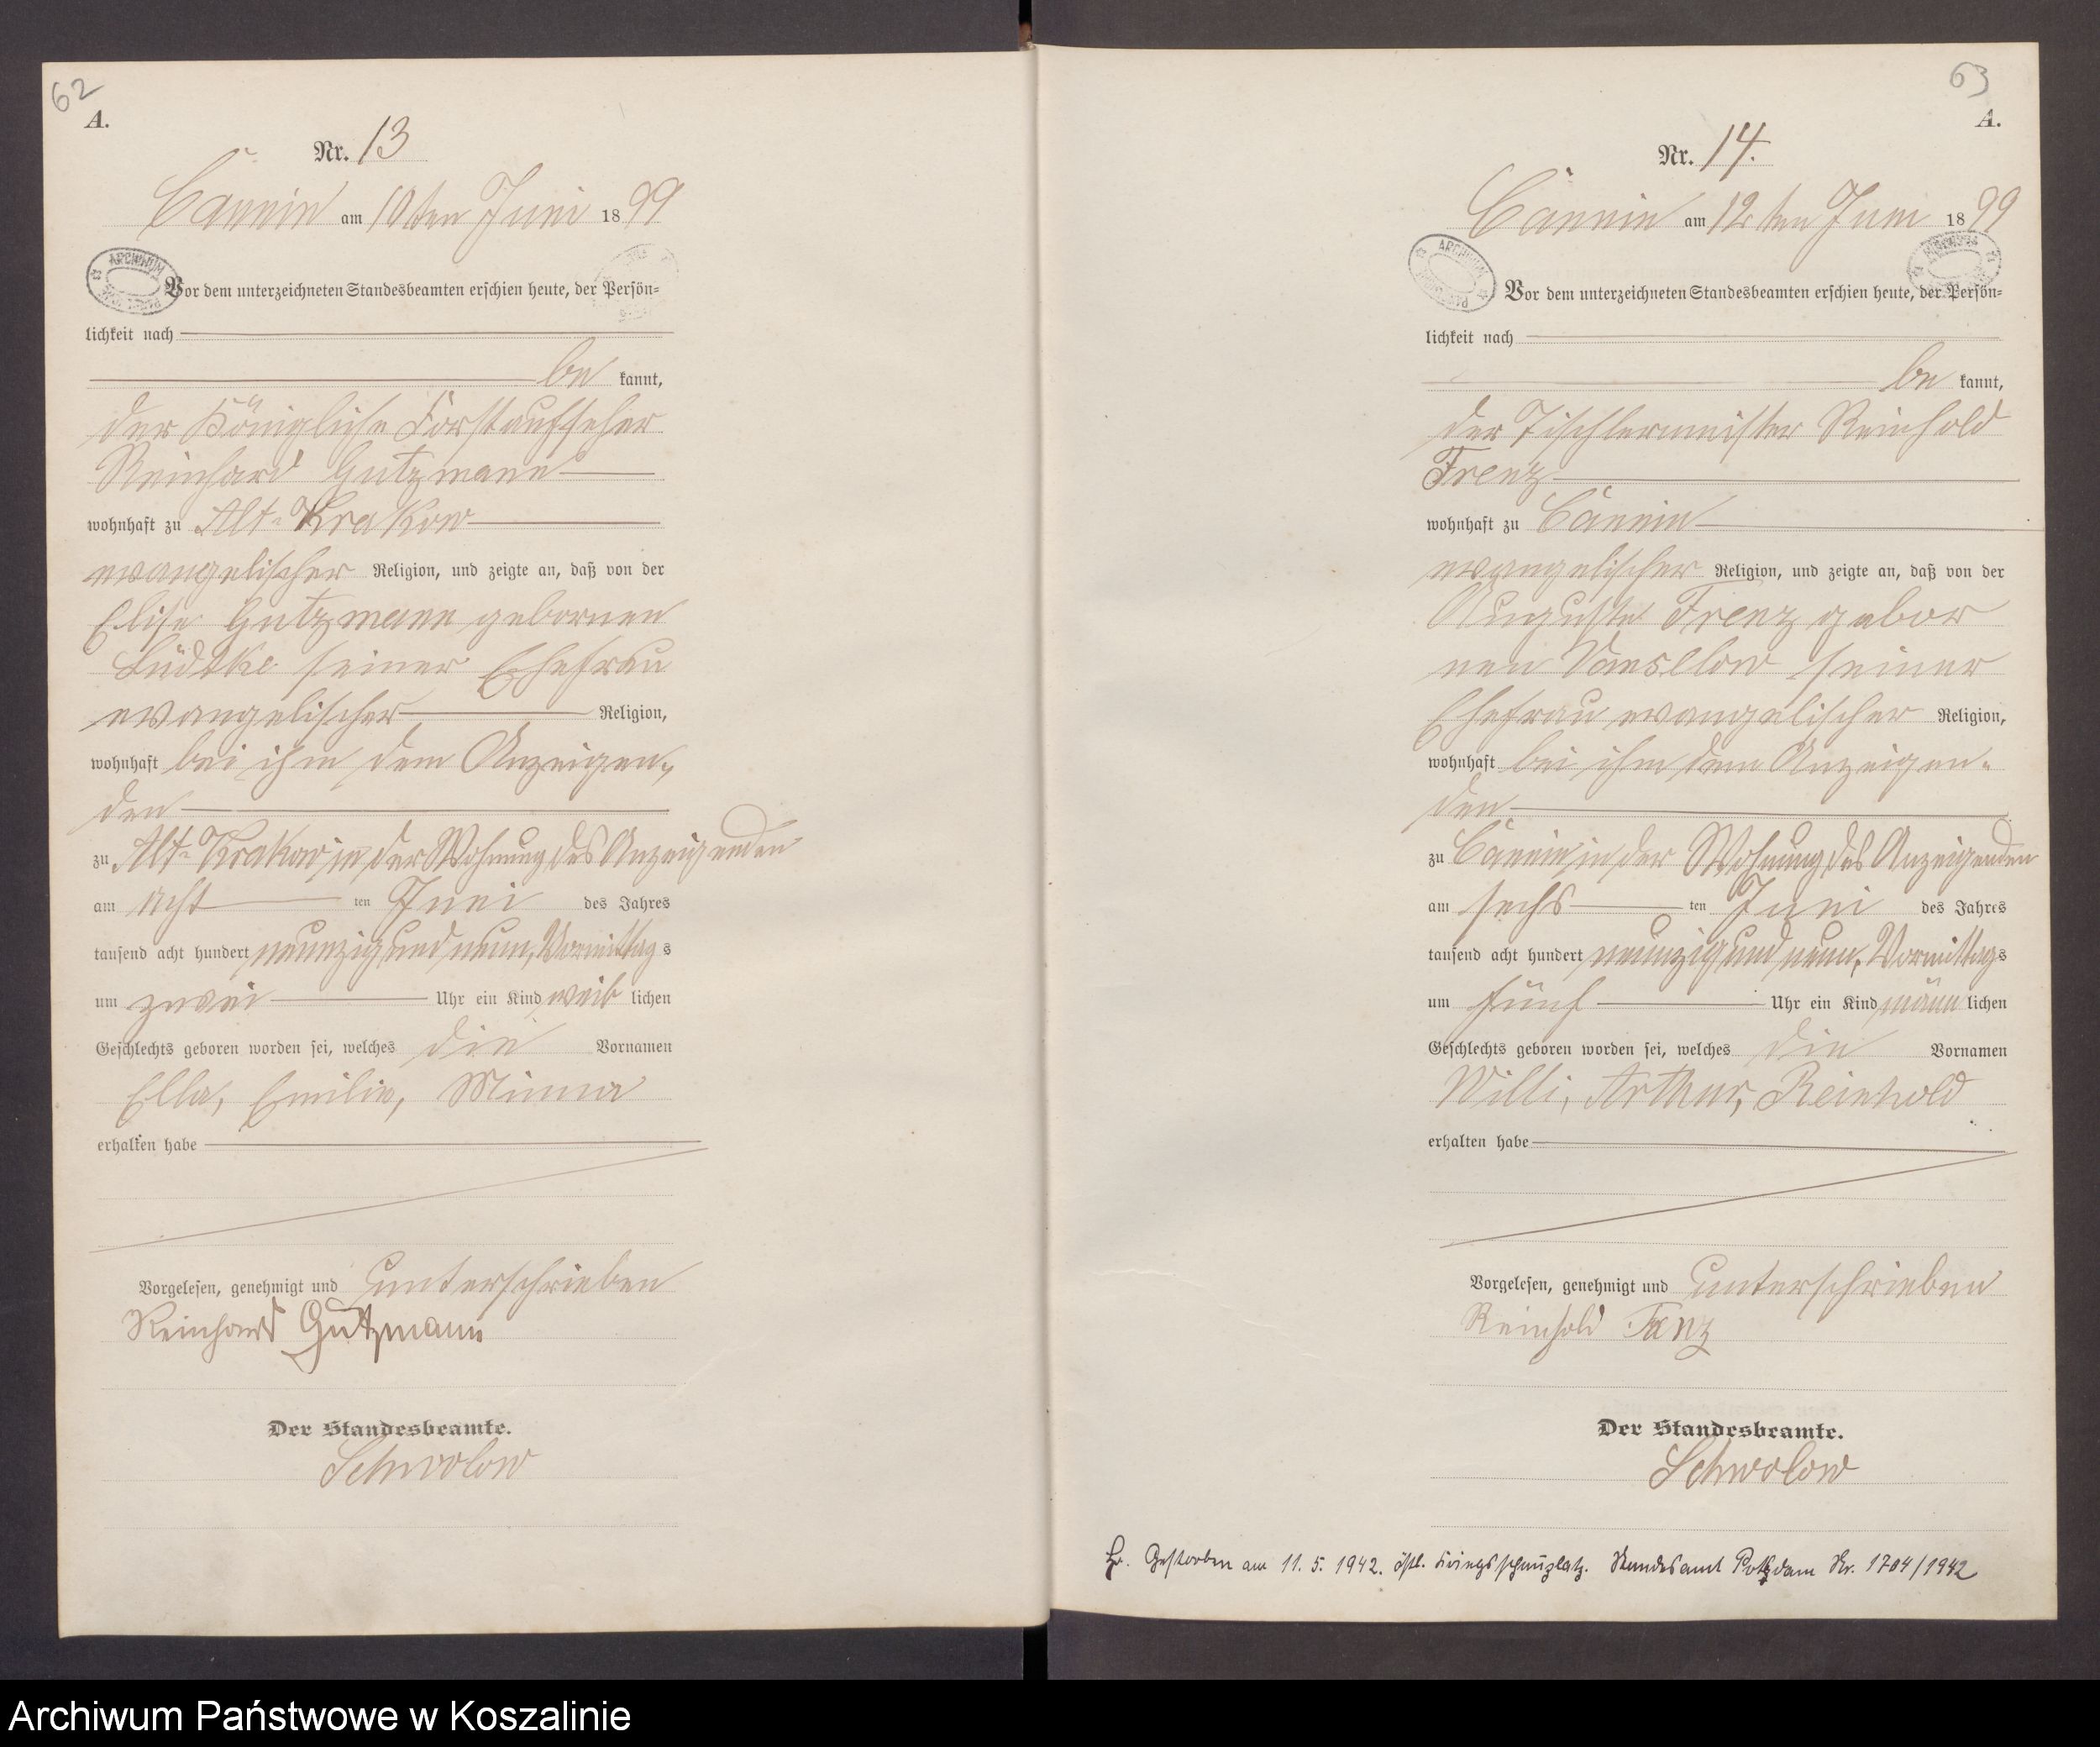 62
A.
Nr. 13
Cannin am 10ten Juni 1899
ARCHIWUM
Vor dem unterzeichneten Standesbeamten erschien heute, der Persön=
lichkeit nach
be kannt,
der Königliche Forstaufseher
Reinhard Gutzmann
wohnhaft zu Alt-Krakow
evangelischer Religion, und zeigte an, daß von der
Elise Gutzmann gebornen
Lüdtke seiner Ehefrau
evangelischer Religion,
wohnhaft bei ihm dem Anzeigen=
den
zu Alt-Krakow in der Wohnung des Anzeigenden
am acht ten Juni des Jahres
tausend acht hundert neunzig und neun, Vormittags
um zwei Uhr ein Kind weib lichen
Geschlechts geboren worden sei, welches die Vornamen
Ella, Emilie, Minna
erhalten habe
Vorgelesen, genehmigt und unterschrieben
Reinhard Gutzmann
Der Standesbeamte.
Schwolow
63
A.
Nr. 14.
Cannin am 12ten Juni 1899
ARCHIWUM
Vor dem unterzeichneten Standesbeamten erschien heute, der Persön=
lichkeit nach
be kannt,
der Tischlermeister Reinhold
Frenz
wohnhaft zu Cannin
evangelischer Religion, und zeigte an, daß von der
Auguste Frenz gebor
nen Vanselow seiner
Ehefrau evangelischer Religion,
wohnhaft bei ihm dem Anzeigen=
den
zu Cannin in der Wohnung des Anzeigenden
am sechs ten Juni des Jahres
tausend acht hundert neunzig und neun, Vormittags
um fünf Uhr ein Kind männ lichen
Geschlechts geboren worden sei, welches die Vornamen
Willi, Arthur, Reinhold
erhalten habe
Vorgelesen, genehmigt und unterschrieben
Reinhold Frenz
Der Standesbeamte.
Schwolow
Gestorben am 11. 5. 1942. östl. Kriegsschauplatz. Standesamt Potsdam Nr. 1704/1942
Archiwum Państwowe w Koszalinie